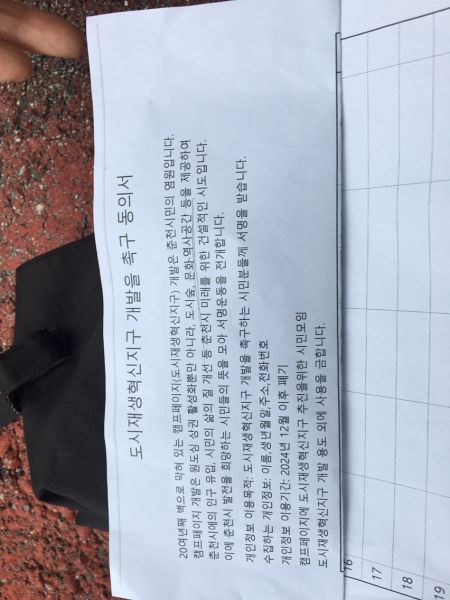 도시재생혁신지구 개발을 촉구 동의서
20여년째 벽으로 막혀 있는 캠프페이지(도시재생혁신지구) 개발은 춘천시민의 염원입니다.
캠프페이지 개발은 원도심 상권 활성화뿐만 아니라, 도시숲, 문화·역사공간 등을 제공하여
춘천시에의 인구 유입, 시민의 삶의 질 개선 등 춘천시 미래를 위한 건설적인 시도입니다.
이에 춘천시 발전을 희망하는 시민들의 뜻을 모아 서명운동을 전개합니다.
개인정보 이용목적: 도시재생혁신지구 개발을 촉구하는 시민분들께 서명을 받습니다.
수집하는 개인정보: 이름,생년월일,주소,전화번호
개인정보 이용기간: 2024년 12월 이후 폐기
캠프페이지에 도시재생혁신지구 추진을위한 시민모임
도시재생혁신지구 개발 용도 외에 사용을 금합니다.
16
17
18
19